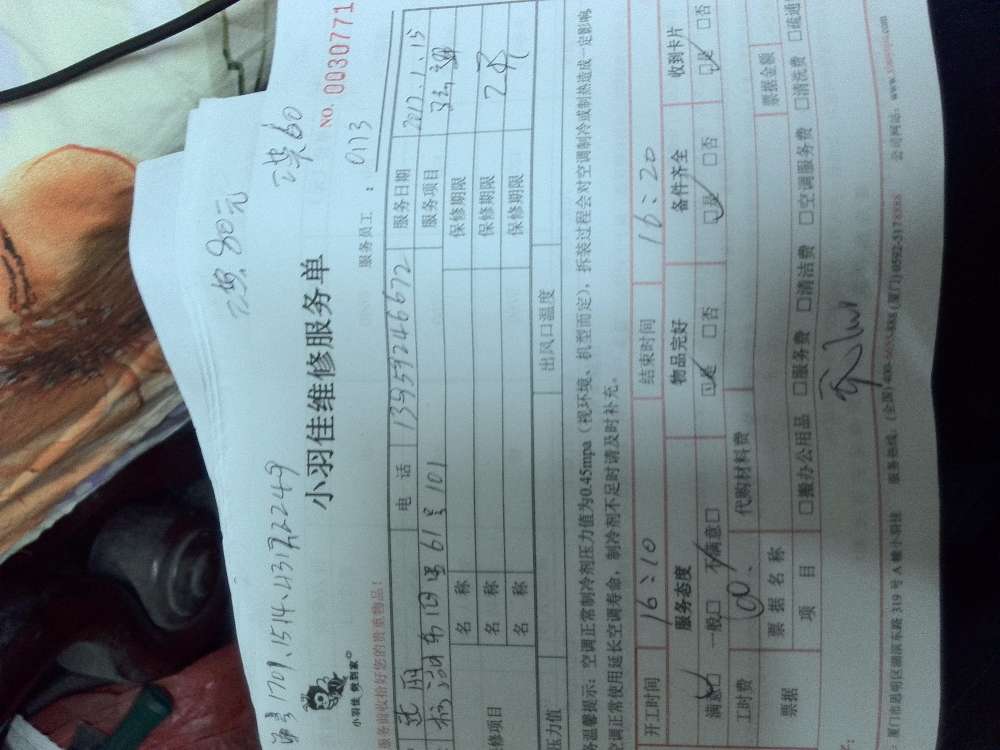 1701、1514、43172249
80元
60
小羽佳 做到家
小羽佳维修服务单
NO. 0030771
服务前收拾好您的贵重物品！
服务员工：013
电 话 13959246672 服务日期 2012.1.15
61号101 服务项目
名 称 保修期限
修项目 名 称 保修期限 2天
名 称 保修期限
压力值 出风口温度
务温馨提示：空调正常制冷剂压力值为0.45mpa（视环境、机型而定），拆装过程会对空调制冷或制热造成一定影响
空调正常使用延长空调寿命，制冷剂不足时请及时补充。
开工时间 16：10 结束时间 16：20
服务态度 物品完好 备件齐全 收到卡片
满意□ 一般□ 不满意□ □是 □否 □是 □否 □是 □否
工时费 60 代购材料费
票据 票据名称 票据金额
项 目 □搬办公用品 □服务费 □清洁费 □空调服务费 □清洗费 □疏通
厦门市思明区湖滨东路319号A幢小羽佳 服务热线：(全国)400- (厦门)0592-5178888 公司网站：www.